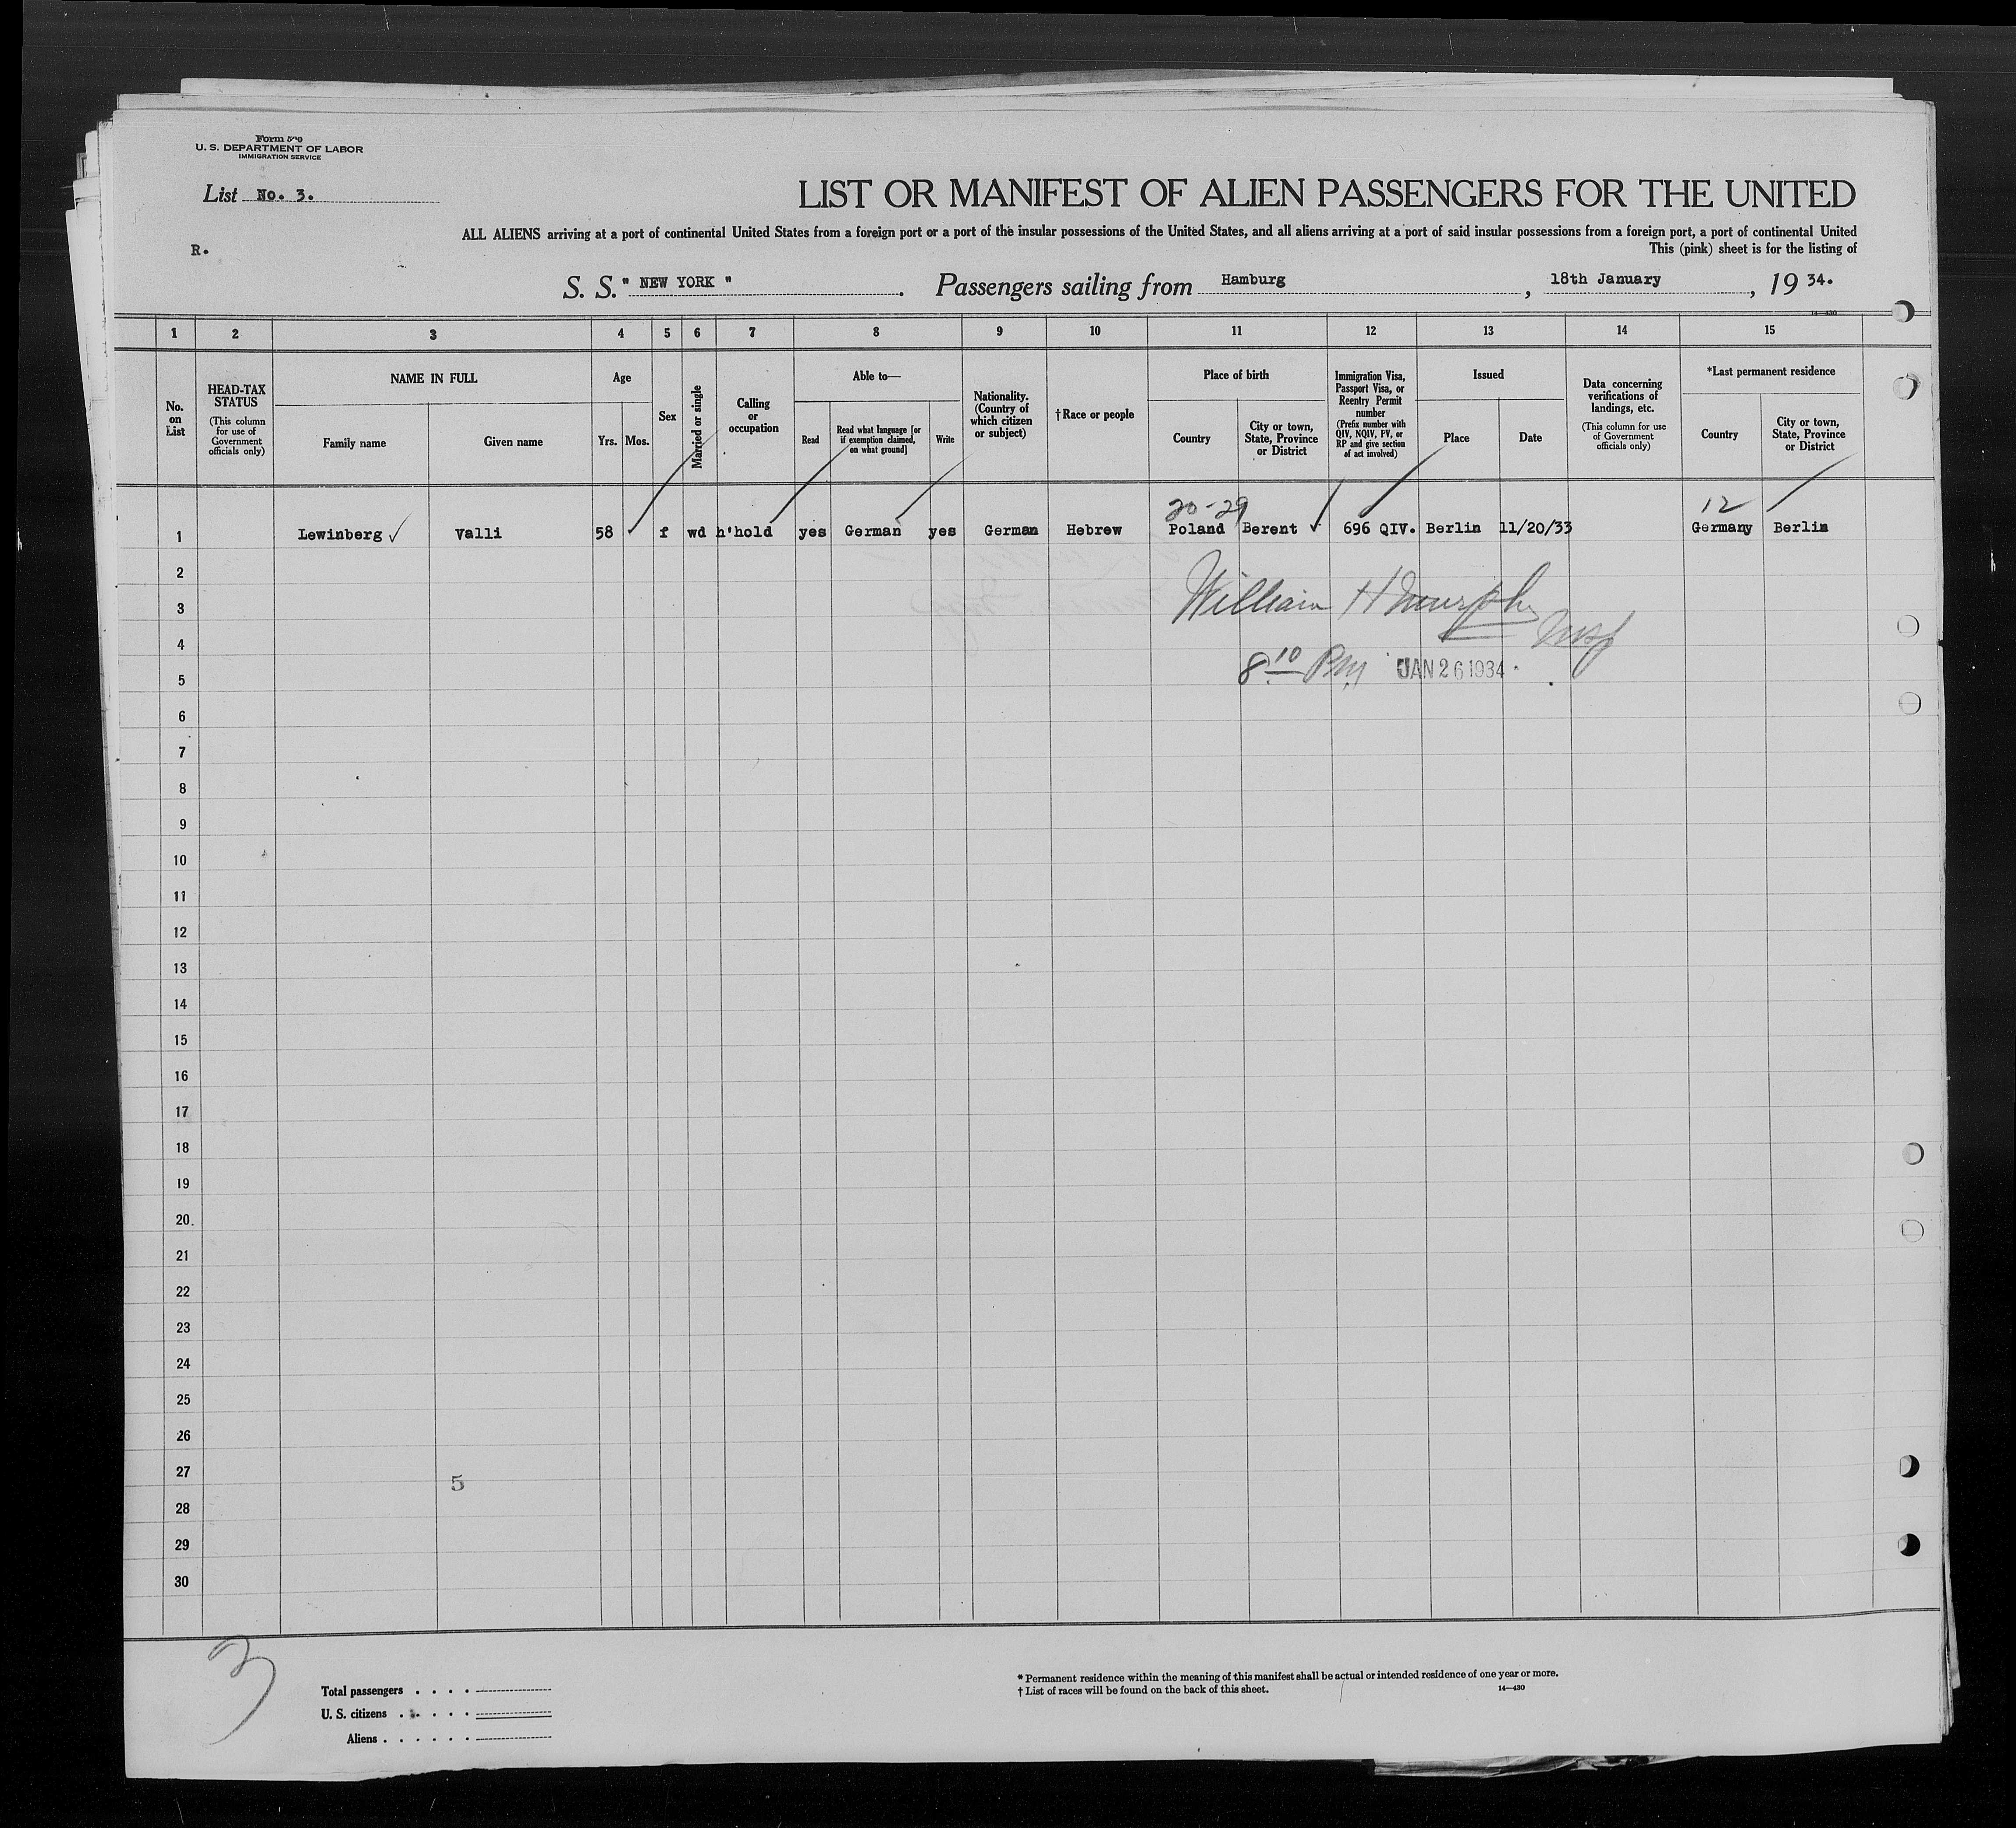 Form 500
U. S. DEPARTMENT OF LABOR
IMMIGRATION SERVICE
List No. 3.
LIST OR MANIFEST OF ALIEN PASSENGERS FOR THE UNITED
ALL ALIENS arriving at a port of continental United States from a foreign port or a port of the insular possessions of the United States, and all aliens arriving at a port of said insular possessions from a foreign port, a port of continental United
R.
This (pink) sheet is for the listing of
S. S. " NEW YORK " . Passengers sailing from Hamburg , 18th January , 19 34.
14—430
1 2 3 4 5 6 7 8 9 10 11 12 13 14 15
No. on List
HEAD-TAX STATUS
(This column for use of Government officials only)
NAME IN FULL
Family name Given name
Age
Yrs. Mos.
Sex
Married or single
Calling or occupation
Able to—
Read
Read what language [or if exemption claimed, on what ground]
Write
Nationality. (Country of which citizen or subject)
†Race or people
Place of birth
Country
City or town, State, Province or District
Immigration Visa, Passport Visa, or Reentry Permit number
(Prefix number with QIV, NQIV, PV, or RP and give section of act involved)
Issued
Place Date
Data concerning verifications of landings, etc.
(This column for use of Government officials only)
*Last permanent residence
Country
City or town, State, Province or District
20-29 12
1 Lewinberg ✓ Valli 58 ✓ f wd h'hold yes German yes German Hebrew Poland Berent ✓ 696 QIV. Berlin 11/20/33 Germany Berlin
2
William H Murphy
3
Insp
4
8 10 PM JAN 26 1934
5
6
7
8
9
10
11
12
13
14
15
16
17
18
19
20
21
22
23
24
25
26
27
5
28
29
30
3
Total passengers . . . .
U. S. citizens . . . . .
Aliens . . . . . .
* Permanent residence within the meaning of this manifest shall be actual or intended residence of one year or more.
† List of races will be found on the back of this sheet.
14—430